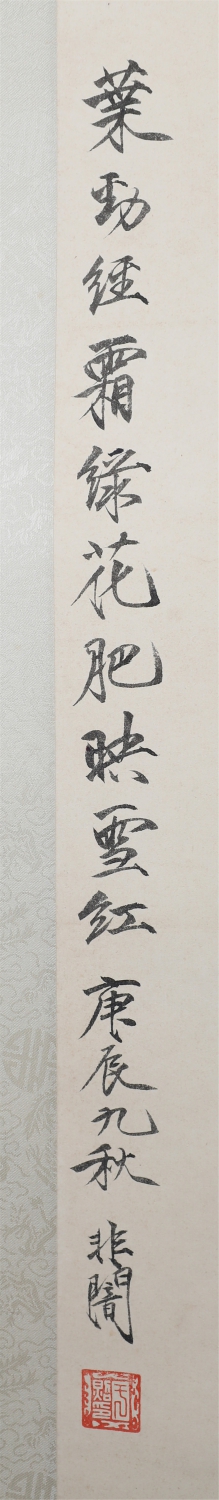 葉勁經霜綠花肥映雪紅 庚辰九秋 非闇